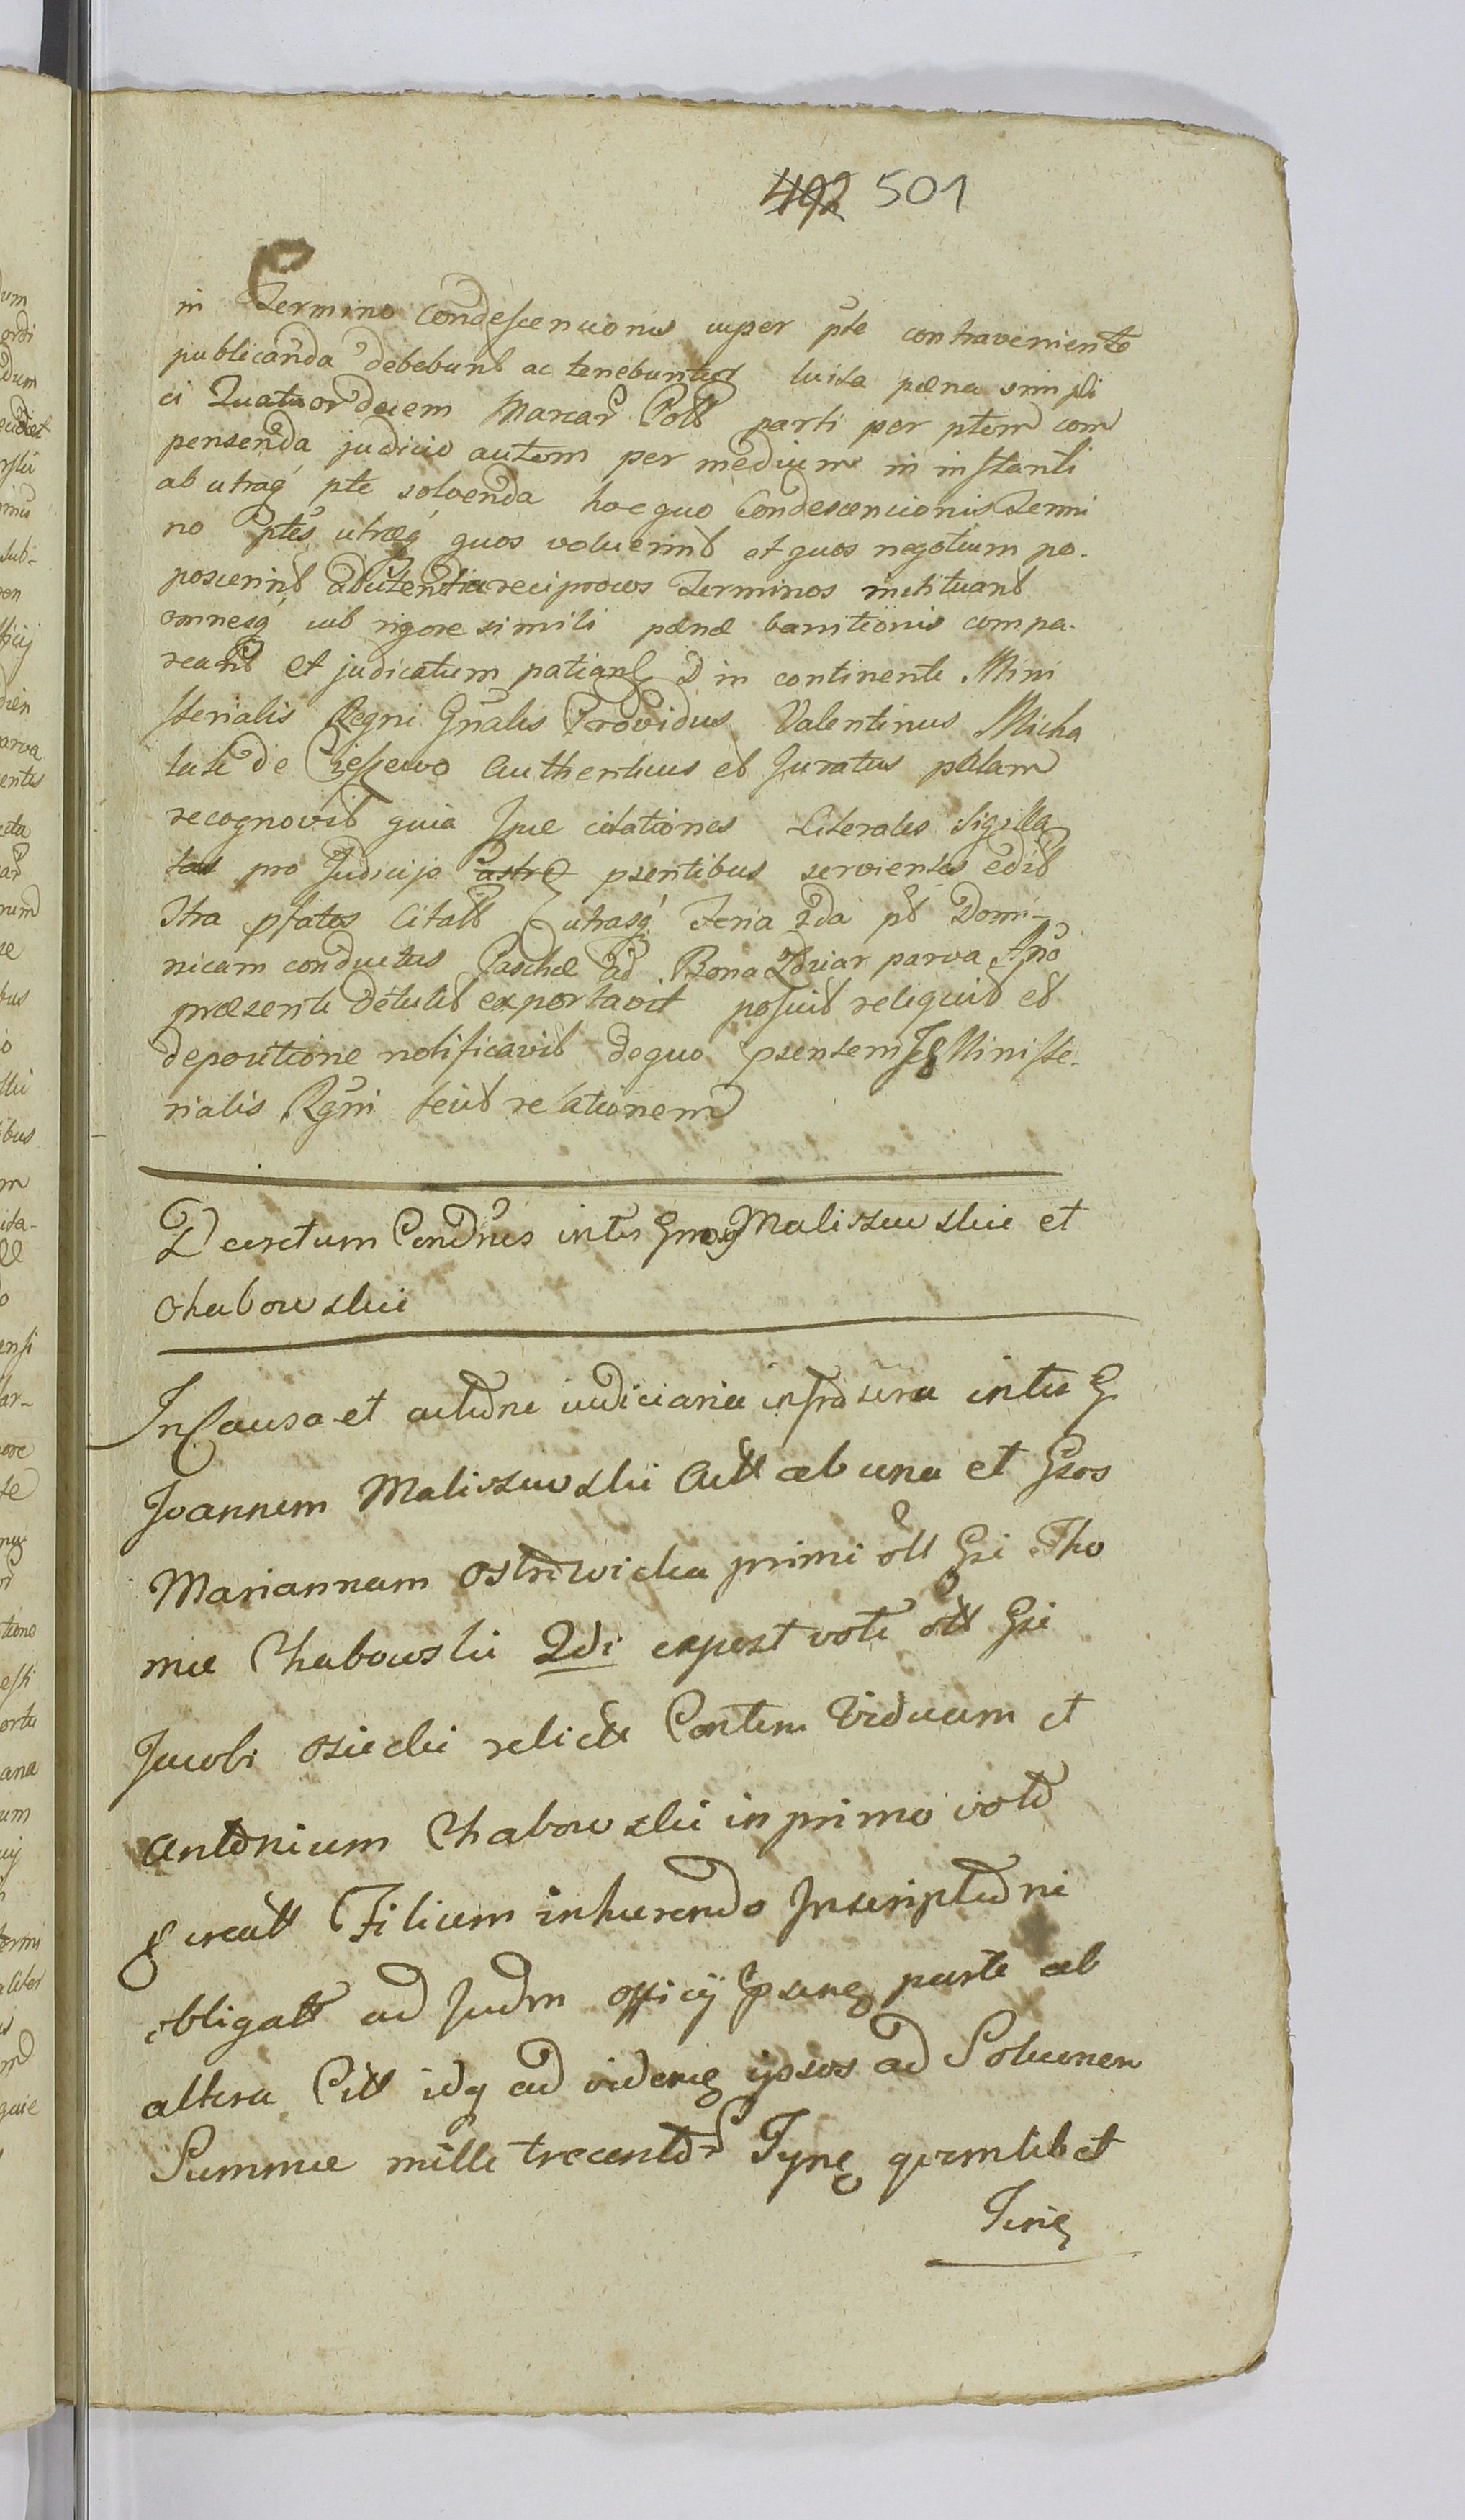 492 501
in Termino Condescencionis super pte contraveniente
publicanda debebunt ac tenebuntur luita pæna simpli
ci Quatuordecem Marcar Poll parti per ptem com
pensenda judicio autem per medium in instanti
ab utraq pte solvenda hocquo Condescencionis Termi
no ptes utræq quos voluerint et quos negotium po-
poscerint reciprocos Terminos instituant
omnesq sub rigore simili pænæ banitionis compa-
reant et judicatum patiant in continenti Mini
sterialis Regni Gnalis Providus Valentinus Micha
lak de Ciessewo Authenticus et Juratus palam
recognovit quia citationes Literales Sigilla
tas pro Judicijs psentibus servientes edit
Itra pfatos Citatt utrasq Feria 2da pt Domi-
nicam conductus Paschæ ad Bona Zdziar parva Ano
præsenti detulit exportavit posuit reliquit et
depositione notificavit dequo psentem Ministe-
rialis Rgni fecit relationem
Decretum Condnis inter Gnos Maliszewskie et
Chabowskie
In Causa et actione iudiciaria infrascra inter G
Joannem Maliszewski Actt ab una et Gsos
Mariannam Ostrowicka primi ott Gsi Tho
mæ Chabowski 2di expost voti ott Gsi
Jacobi Osiecki relictt Contem Viduam et
Antonium Chabowski in primo voto
ꝓcreatt Filium inhærendo Inscriptioni
obligatt ad Judm officij psung parte ab
altera Citt idq ad ipsos ad Soluonem
Summæ mille trecentor Tynf quemlibet
Tynf